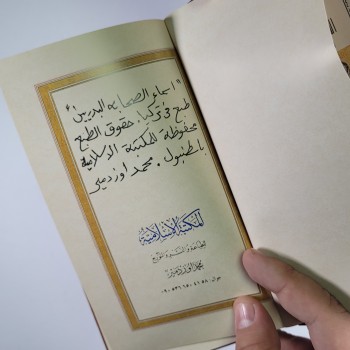 "اسماء الصحابه البدريين"
طبع فى تركيا، حقوق الطبع
محفوظة للمكتبة الاسلامية
باسطنبول. محمد اوزدمير
المكتبة الإسلامية
للطباعة والنشر والتوزيع
محمد أوزدمير